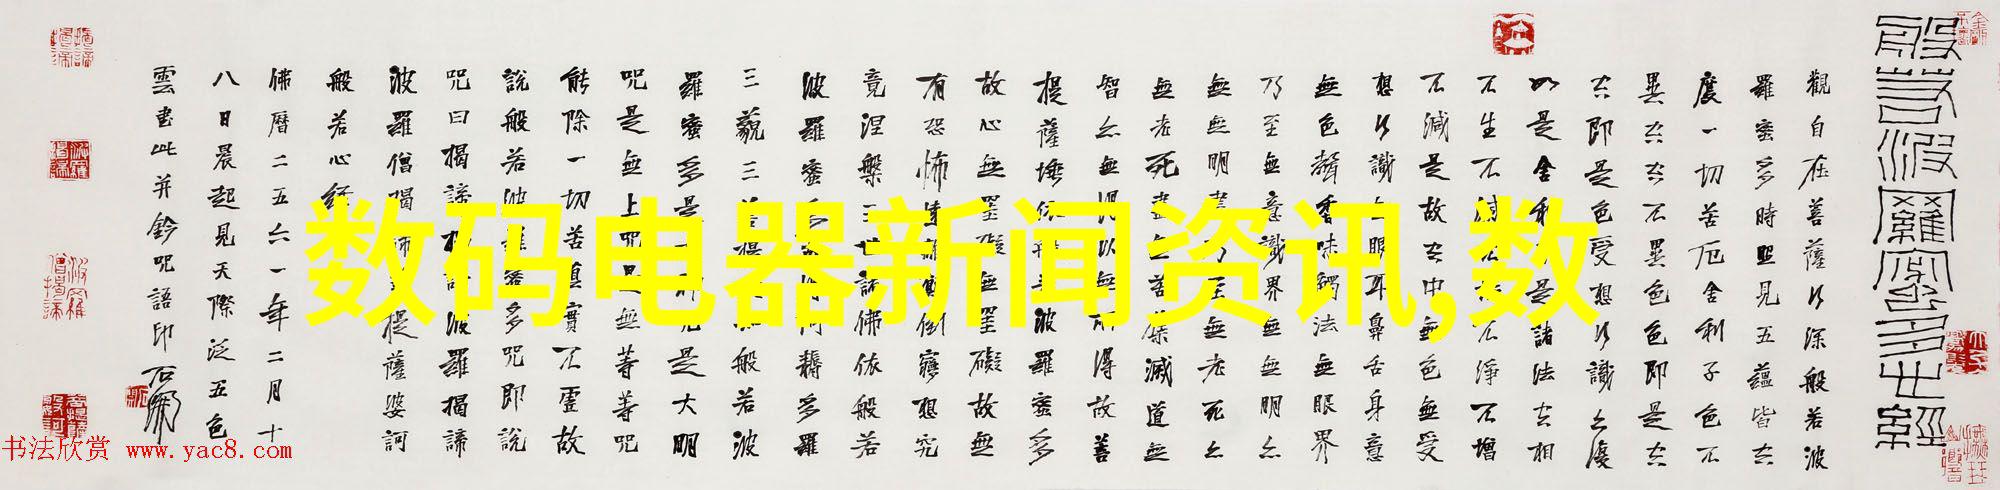 般若波羅蜜多心經
觀自在菩薩行深般若波
羅蜜多時照見五蘊皆空
度一切苦厄舍利子色不
異空空不異色色即是空
空即是色受想行識亦復
如是舍利子是諸法空相
不生不滅不垢不淨不增
不減是故空中無色無受
想行識無眼耳鼻舌身意
無色聲香味觸法無眼界
乃至無意識界無無明亦
無無明盡乃至無老死亦
無老死盡無苦集滅道無
智亦無得以無所得故菩
提薩埵依般若波羅蜜多
故心無罣礙無罣礙故無
有恐怖遠離顛倒夢想究
竟涅槃三世諸佛依般若
波羅蜜多故得阿耨多羅
三藐三菩提故知般若波
羅蜜多是大神咒是大明
咒是無上咒是無等等咒
能除一切苦真實不虛故
說般若波羅蜜多咒即說
咒曰揭諦揭諦波羅揭諦
波羅僧揭諦菩提薩婆訶
般若心經
佛曆二五六一年二月十
八日晨起見天際泛五色
雲書此并鈐咒語印 石開
数码电器新闻资讯,数
书法欣赏 www.yac8.com